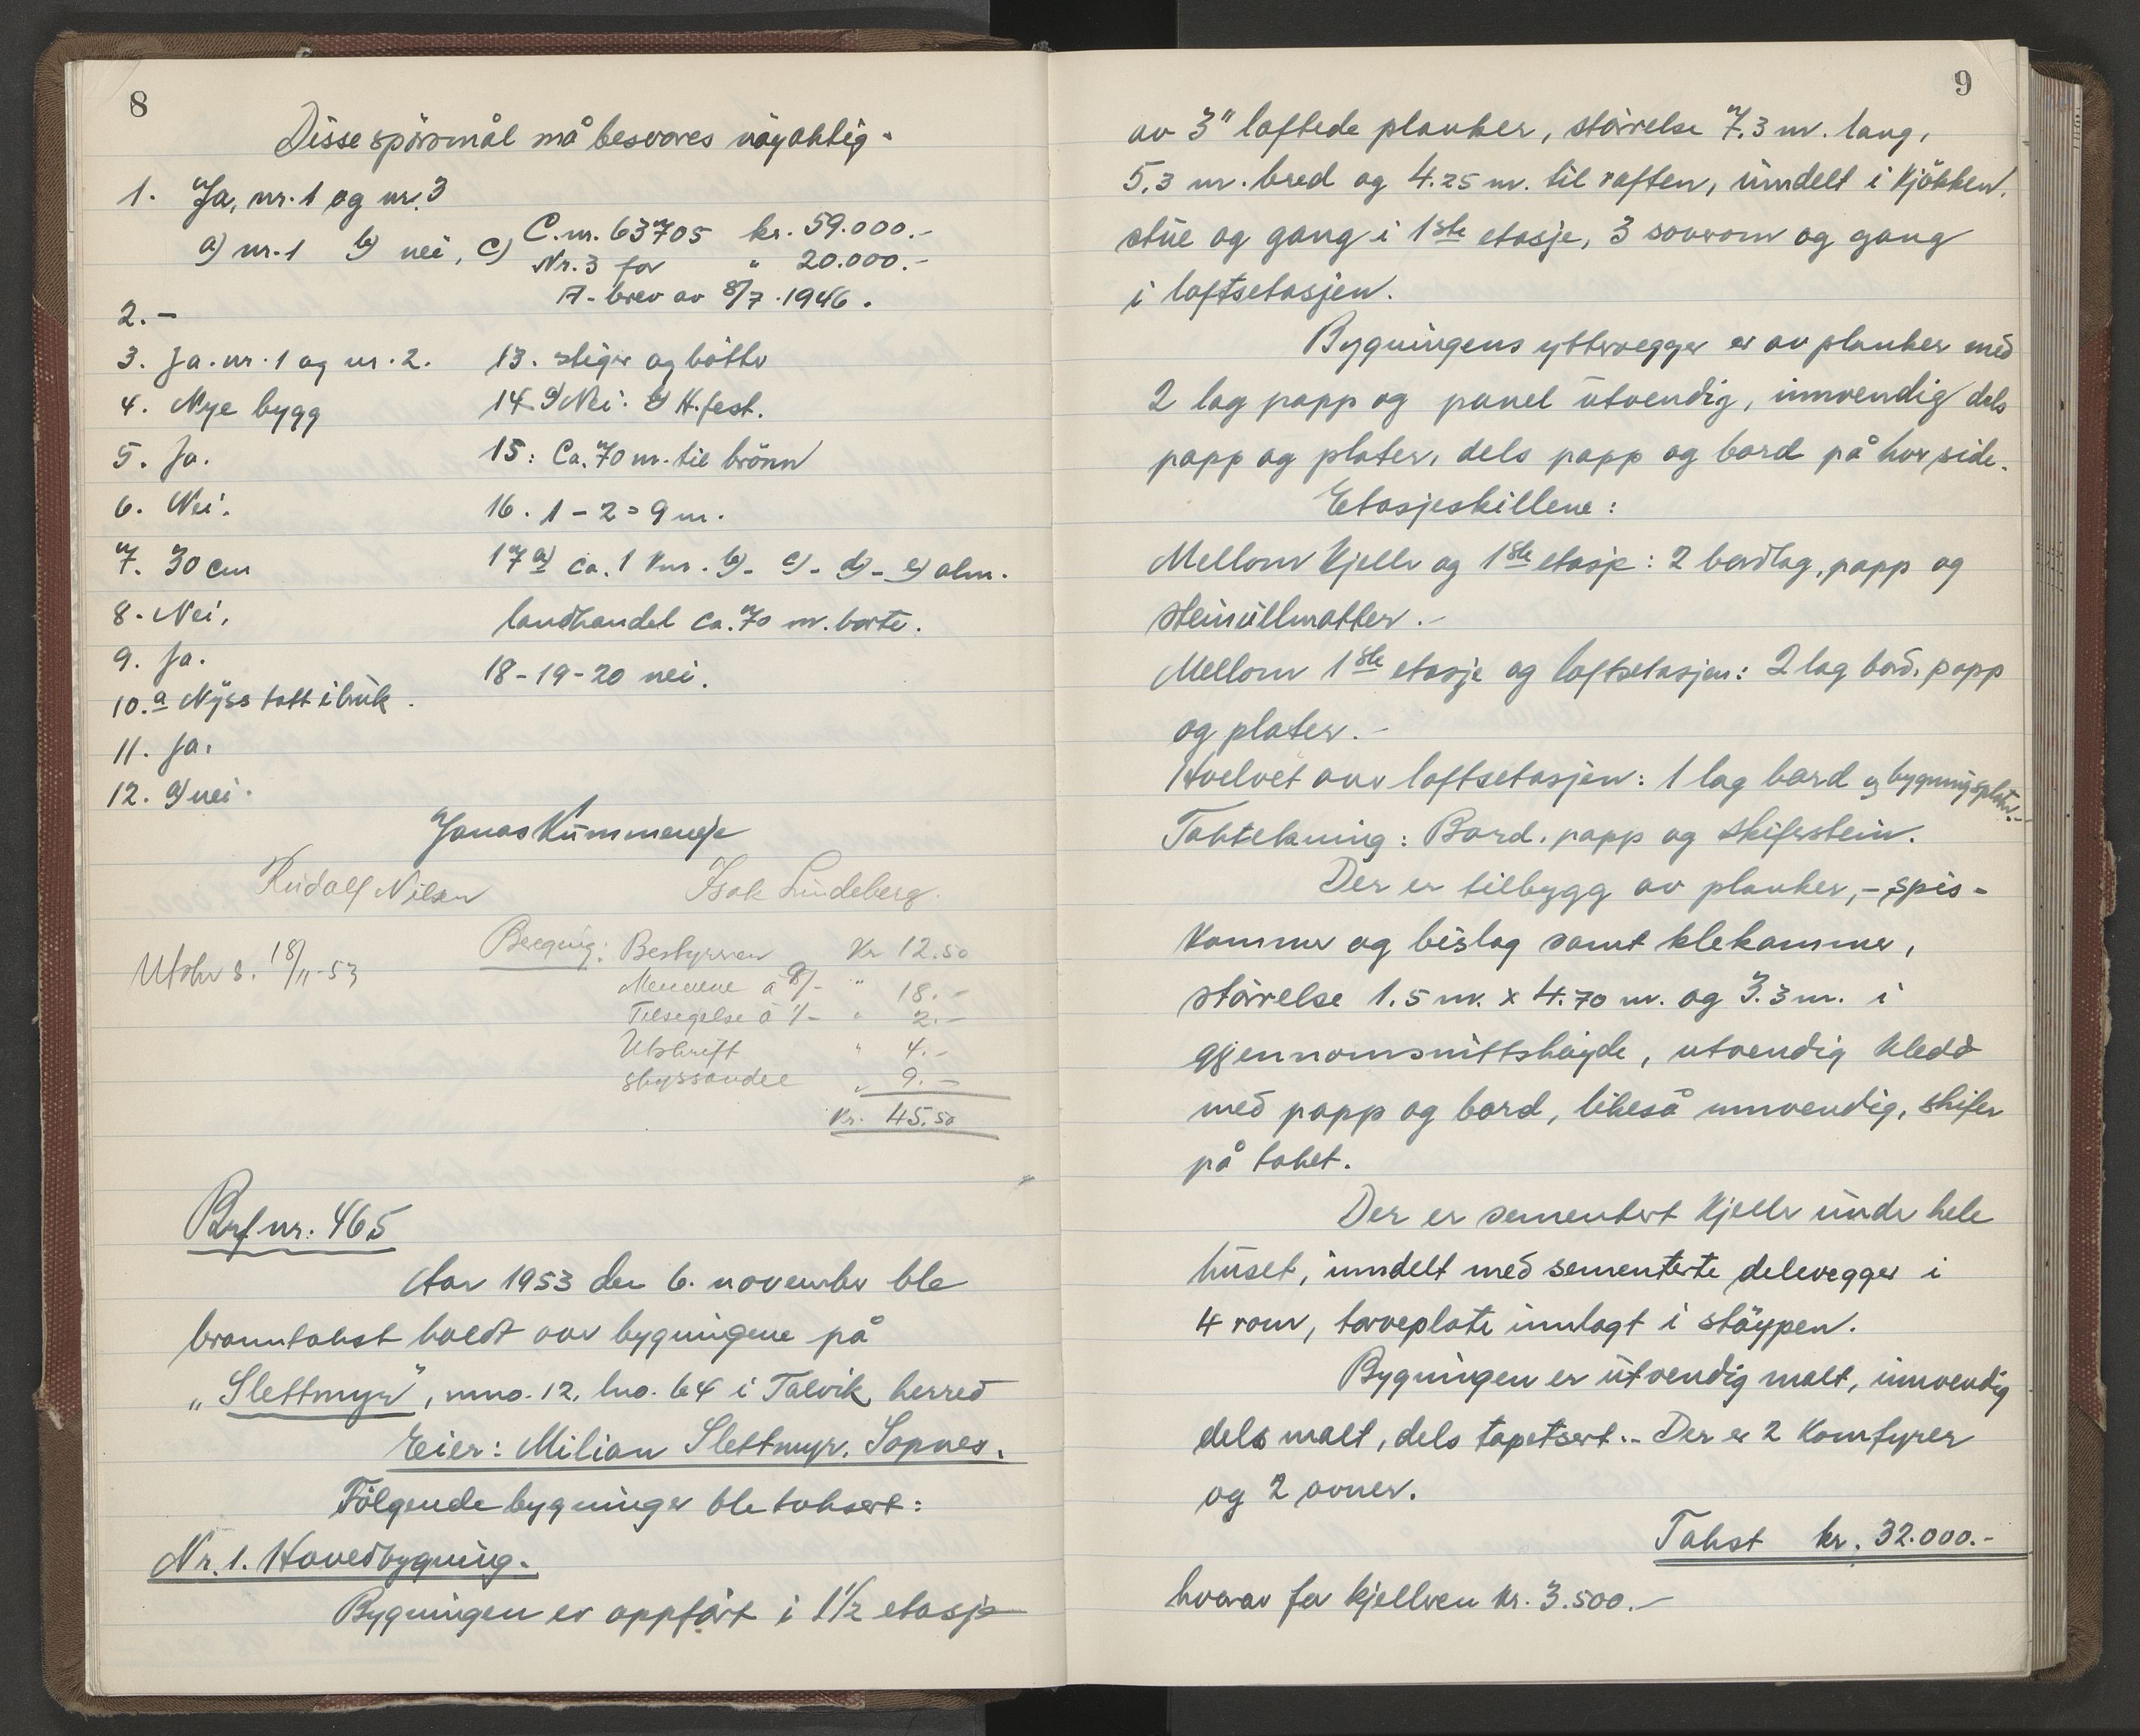 8
Disse spörsmål må besvares nöyaktig.
1. Ja, nr. 1 og nr. 3
a) nr. 1 b) nei, c) C.nr. 63705 kr. 59.000.-
Nr. 3 for " 20.000.-
A-brev av 8/7.1946.
2. -
3. Ja. nr. 1 og nr. 2.
4. Nye bygg
5. Ja.
6. Nei.
7. 30 cm
8. Nei.
9. Ja.
10. a Nyss tatt i bruk.
11. Ja.
12. a) nei.
13. stiger og bötter
14 a) Nei. b) H.fest.
15: Ca. 70 m. til brönn
16. 1 - 2 = 9 m.
17 a) ca. 1 km. b)- c)- d)- e) alm.
landhandel ca. 70 m. borte.
18-19-20 nei.
Jonas Kummeneje
Rudolf Nilsen Isak Lindeberg.
Utskr. s. 18/11-53
Beregnig: Bestyreren Kr 12.50
Mennene à 9/- " 18.-
Tilsigelse à 1/- " 2.-
Utskrift " 4.-
skyssandel " 9.-
Kr. 45.50
Brf nr. 465
Aar 1953 den 6. november ble
branntakst holdt over bygningene på
„Slettmyr", mno. 12, lno. 64 i Talvik herred
Eier: Milian Slettmyr. Sopnes.
Fölgende bygninger ble taksert:
Nr. 1. Hovedbygning.
Bygningen er oppfört i 1 1/2 etasje
9
av 3" laftede planker, störrelse 7.3 m. lang,
5,3 m. bred og 4.25 m. til raften, inndelt i kjökken,
stue og gang i 1ste etasje, 3 soverom og gang
i loftsetasjen.
Bygningens yttervegger er av planker med
2 lag papp og panel utvendig, innvendig dels
papp og plater, dels papp og bord på hver side.
Etasjeskillene:
Mellom kjeller og 1ste etasje: 2 bordlag, papp og
steinullmatter.-
Mellom 1ste etasje og loftsetasjen: 2 lag bord, papp
og plater.-
Hvelvet over loftsetasjen: 1 lag bord og bygningsplater.-
Taktekning: Bord, papp og skiferstein.
Der er tilbygg av planker, - spis-
kammer og bislag samt klekammer,
störrelse 1.5 m. x 4.70 m. og 3.3 m. i
gjennomsnittshöyde, utvendig kledd
med papp og bord, likeså innvendig, skifer
på taket.
Der er sementert kjeller under hele
huset, inndelt med sementerte delevegger i
4 rom, torveplate innlagt i stöypen.
Bygningen er utvendig malt, innvendig
dels malt, dels tapetsert.- Der er 2 komfyrer
og 2 ovner.
Takst kr. 32.000.-
hvorav for kjelleren kr. 3.500.-